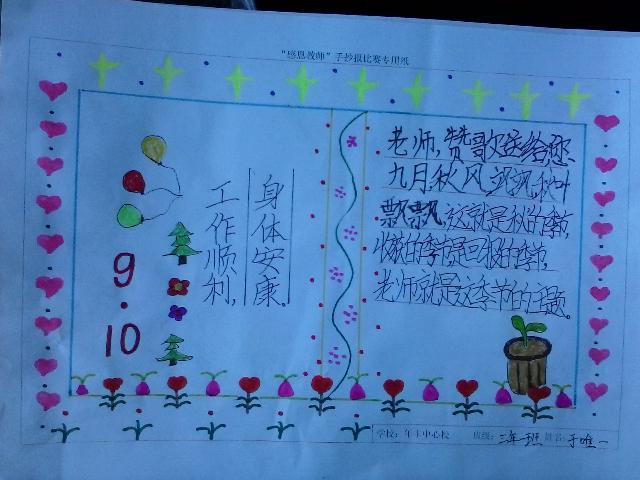 “感恩教师”手抄报比赛专用纸
身体安康,
工作顺利,
9.10
老师,赞歌送给您.
九月,秋风,飒飒,秋叶
飘飘,这就是秋的季节,
收获的季节是回报的季节,
老师就是这季节的主题。
学校:年丰中心校 班级:三年一班 姓名:于唯一